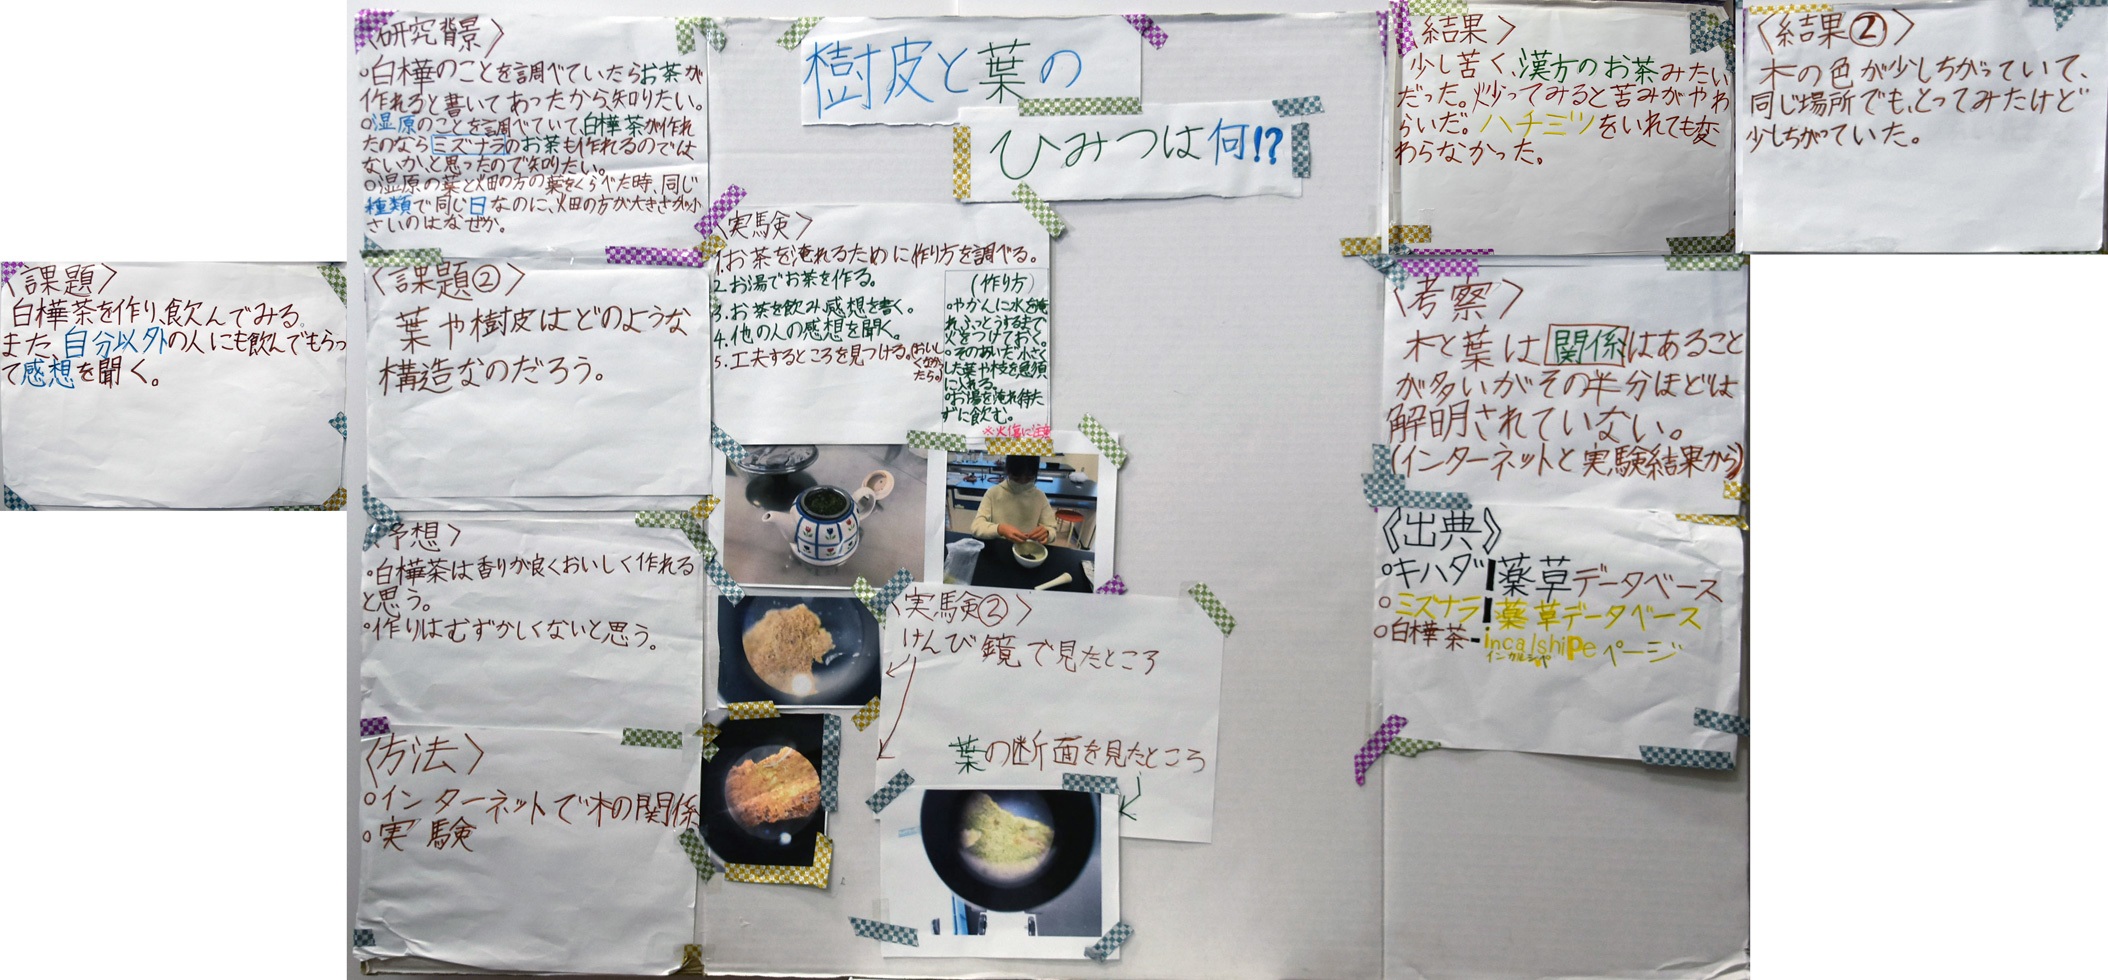 樹皮と葉の
ひみつは何!?
〈研究背景〉
○白樺のことを調べていたらお茶が
作れると書いてあったから知りたい。
○湿原のことを調べていて、白樺茶が作れ
たのならミズナラのお茶も作れるのでは
ないか、と思ったので知りたい。
○湿原の葉と畑の方の葉をくらべた時、同じ
種類で同じ日なのに、畑の方が大きさが小
さいのはなぜか。
〈課題〉
白樺茶を作り、飲んでみる。
また、自分以外の人にも飲んでもらっ
て感想を聞く。
〈課題②〉
葉や樹皮はどのような
構造なのだろう。
〈予想〉
・白樺茶は香りが良くおいしく作れる
と思う。
・作りはむずかしくないと思う。
〈方法〉
○インターネットで木の関係
○実験
〈実験〉
1.お茶を淹れるために作り方を調べる。
2.お湯でお茶を作る。
3.お茶を飲み感想を書く。
4.他の人の感想を聞く。
5.工夫するところを見つける。(おいし
くなかっ
たら。)
(作り方)
○やかんに水を淹
れ、ふっとうするまで
火をつけておく。
○そのあいだ小さく
した葉や枝を急須
に入れる。
○お湯を淹れ待た
ずに飲む。
※火傷に注意
〈実験②〉
けんび鏡で見たところ
葉の断面を見たところ
〈結果〉
少し苦く、漢方のお茶みたい
だった。炒ってみると苦みがやわ
らいだ。ハチミツをいれても変
わらなかった。
〈結果②〉
木の色が少しちがっていて、
同じ場所でも、とってみたけど
少しちがっていた。
〈考察〉
木と葉は関係はあること
が多いがその半分ほどは
解明されていない。
(インターネットと実験結果から)
《出典》
○キハダ|薬草データベース
○ミズナラ|薬草データベース
○白樺茶-incalshipeページ
インカルシペ